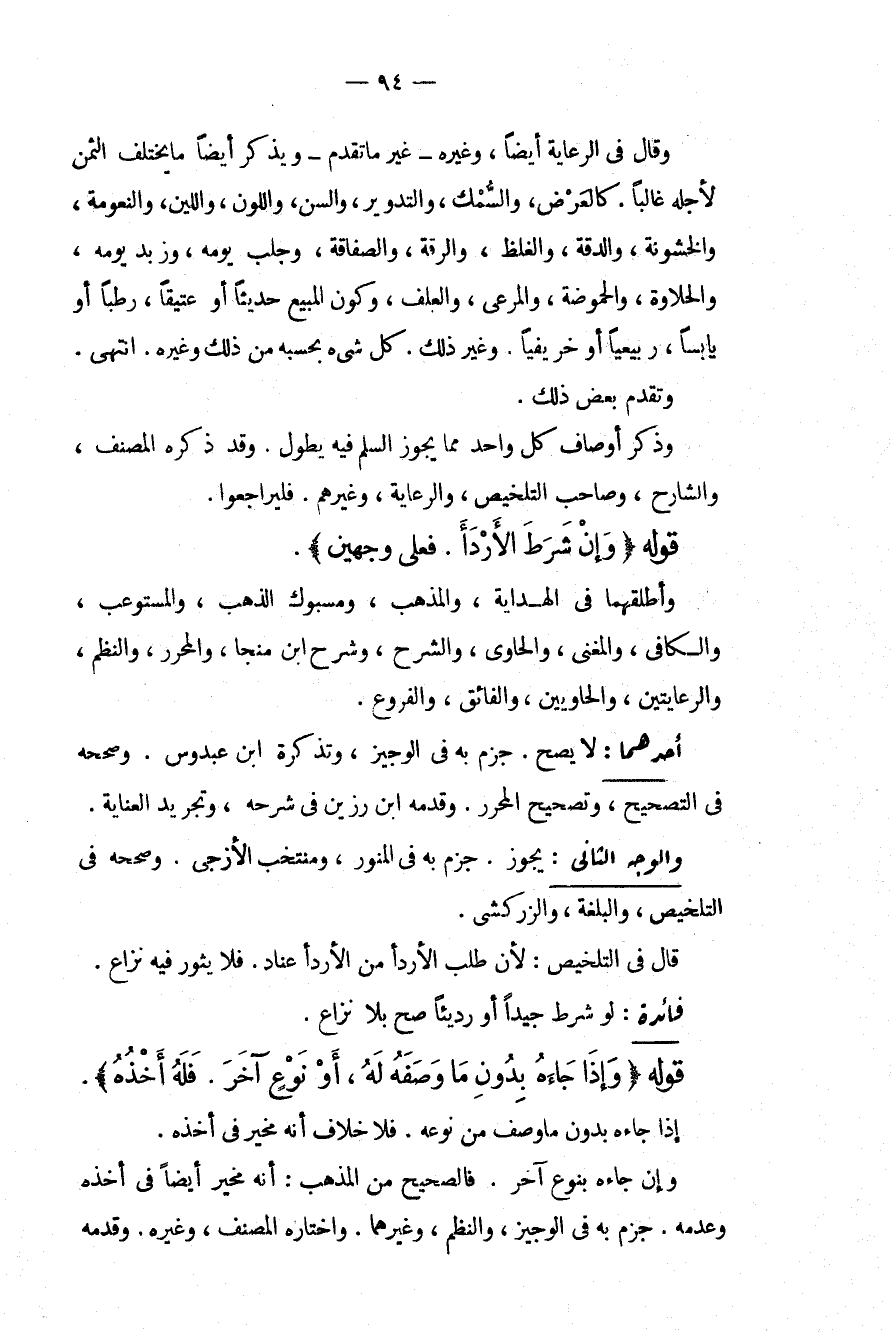 — ٩٤ —
وقال فى الرعاية أيضاً ، وغيره ـ غير ماتقدم ـ ويذكر أيضاً مايختلف الثمن
لأجله غالباً . كالعَرْض، والسُّمْك ، والتدوير ، والسن، واللون ، واللين، والنعومة ،
والخشونة ، والدقة ، والغلظ ، والرقة ، والصفاقة ، وجلب يومه ، وزبد يومه ،
والحلاوة ، والحموضة ، والمرعى ، والعلف ، وكون المبيع حديثاً أو عتيقاً ، رطباً أو
يابساً ، ربيعياً أو خريفياً . وغير ذلك . كل شىء بحسبه من ذلك وغيره . انتهى .
وتقدم بعض ذلك .
وذكر أوصاف كل واحد مما يجوز السلم فيه يطول . وقد ذكره المصنف ،
والشارح ، وصاحب التلخيص ، والرعاية ، وغيرهم . فليراجعوا .
قوله ﴿ وَإِنْ شَرَطَ الأَرْدَأَ . فعلى وجهين ﴾ .
وأطلقهما فى الهـداية ، والمذهب ، ومسبوك الذهب ، والمستوعب ،
والـكافى ، والمغنى ، والحاوى ، والشرح ، وشرح ابن منجا ، والمحرر ، والنظم ،
والرعايتين ، والحاويين ، والفائق ، والفروع .
أحدهما : لا يصح . جزم به فى الوجيز ، وتذكرة ابن عبدوس . وصححه
فى التصحيح ، وتصحيح المحرر . وقدمه ابن رزين فى شرحه ، وتجريد العناية .
والوجه الثانى : يجوز . جزم به فى المنور ، ومنتخب الأزجى . وصححه فى
التلخيص ، والبلغة ، والزركشى .
قال فى التلخيص : لأن طلب الأردأ من الأردأ عناد . فلا يثور فيه نزاع .
فائدة : لو شرط جيداً أو رديئاً صح بلا نزاع .
قوله ﴿ وَإِذَا جَاءَهُ بِدُونِ مَا وَصَفَهُ لَهُ ، أَوْ نَوْعٍ آخَرَ . فَلَهُ أَخْذُهُ ﴾ .
إذا جاءه بدون ماوصف من نوعه . فلا خلاف أنه مخير فى أخذه .
وإن جاءه بنوع آخر . فالصحيح من المذهب : أنه مخير أيضاً فى أخذه
وعدمه . جزم به فى الوجيز ، والنظم ، وغيرهما . واختاره المصنف ، وغيره . وقدمه